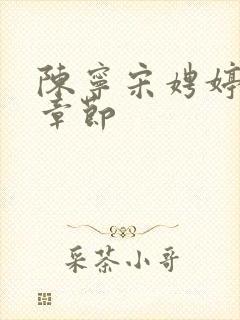 陳寧宋娉婷
章節
采茶小哥